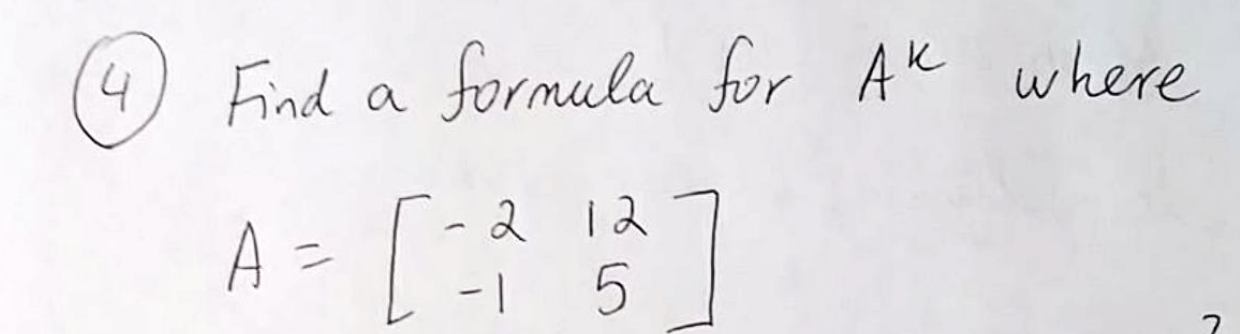 ④ Find a formula for Aᵏ where
A = [ -2 12
-1 5 ]
?